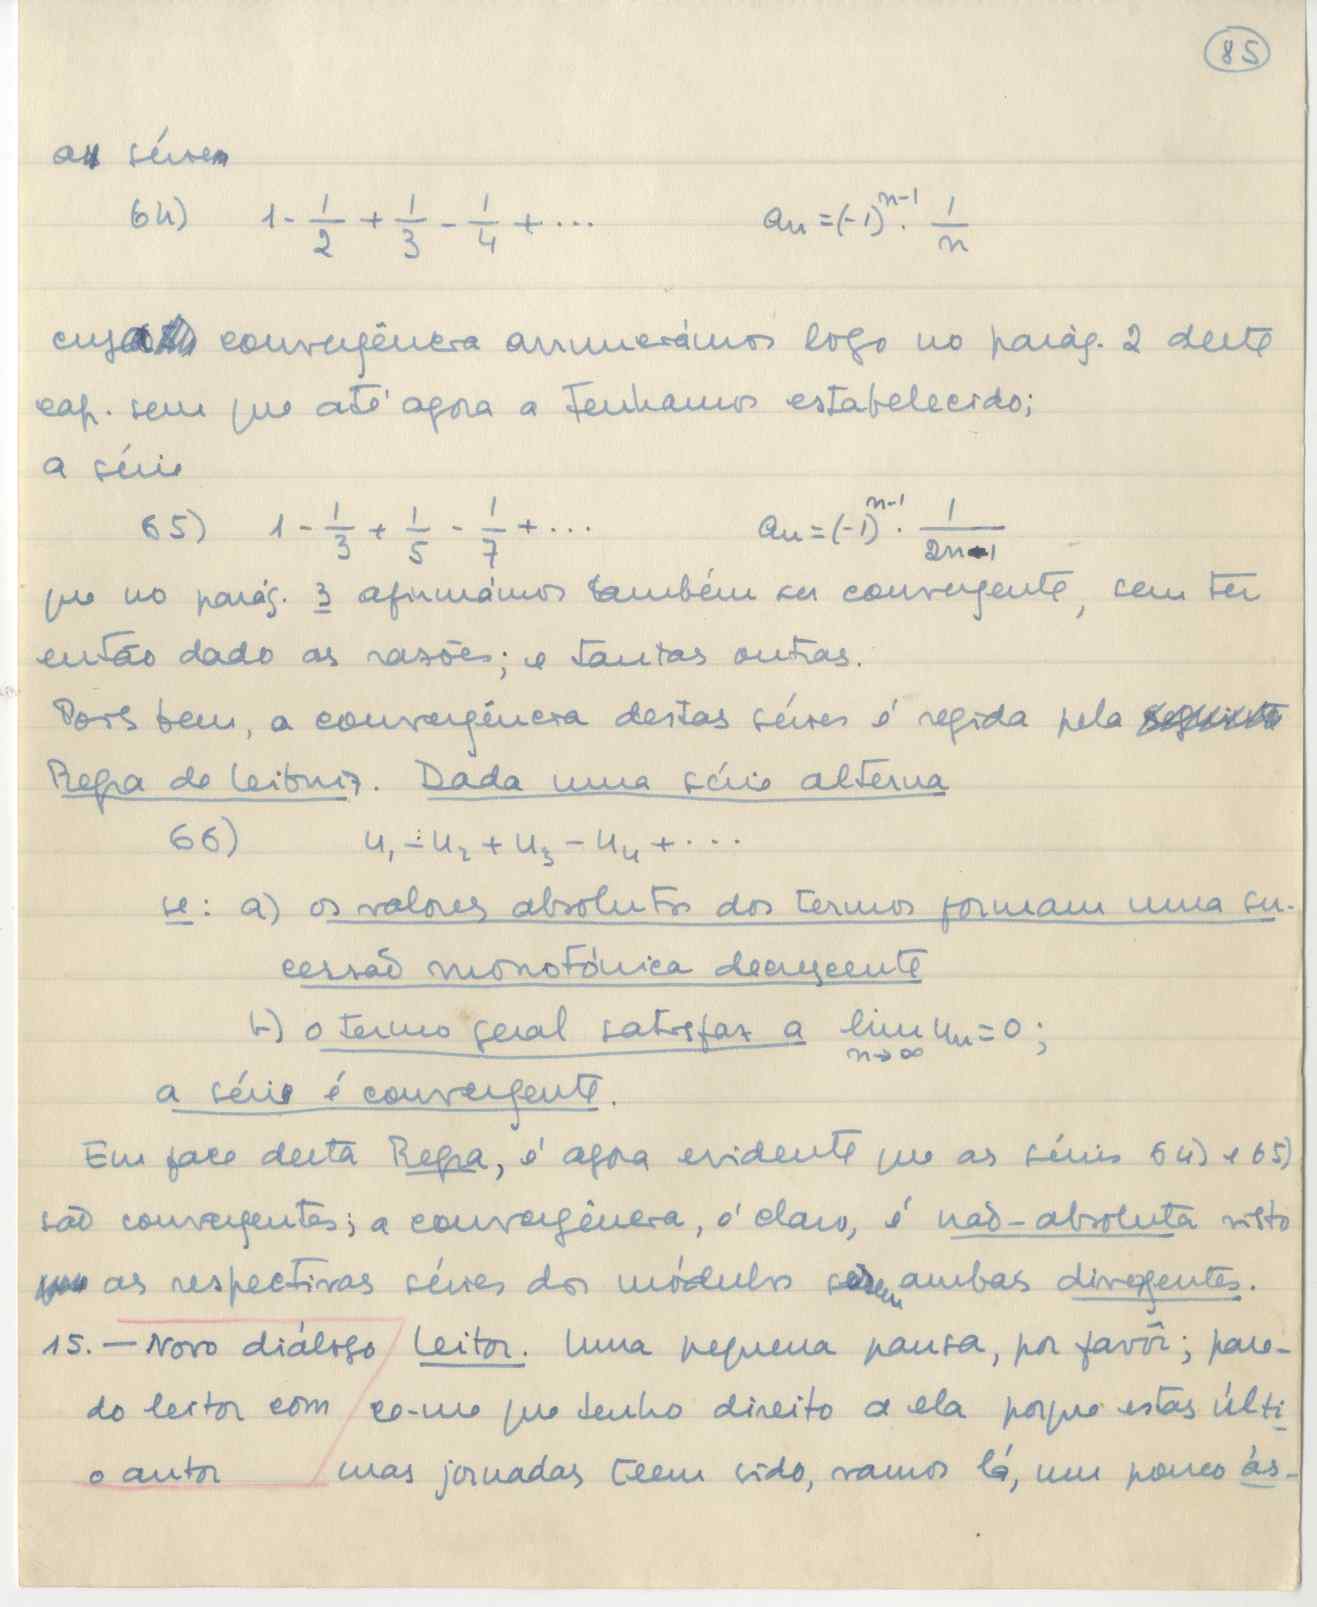 85
a série
64) 1 - 1/2 + 1/3 - 1/4 + ... aₙ = (-1)ⁿ⁻¹ · 1/n
cuja convergência anunciámos logo no parág. 2 deste
cap. sem que até agora a tenhamos estabelecido;
a série
65) 1 - 1/3 + 1/5 - 1/7 + ... aₙ = (-1)ⁿ⁻¹ · 1/(2n-1)
que no parág. 3 afirmámos também ser convergente, sem ter
então dado as razões; e tantas outras.
Pois bem, a convergência destas séries é regida pela
Regra de Leibniz. Dada uma série alterna
66) u₁ - u₂ + u₃ - u₄ + ...
se: a) os valores absolutos dos termos formam uma su-
cessão monotónica decrescente
b) o termo geral satisfaz a lim uₙ = 0;
n→∞
a série é convergente.
Em face desta Regra, é agora evidente que as séries 64) e 65)
são convergentes; a convergência, é claro, é não-absoluta visto
as respectivas séries dos módulos serem ambas divergentes.
15. — Novo diálogo Leitor. Uma pequena pausa, por favôr; pare-
do leitor com ce-me que tenho direito a ela porque estas últi-
o autor mas jornadas teem sido, vamos lá, um pouco ás-